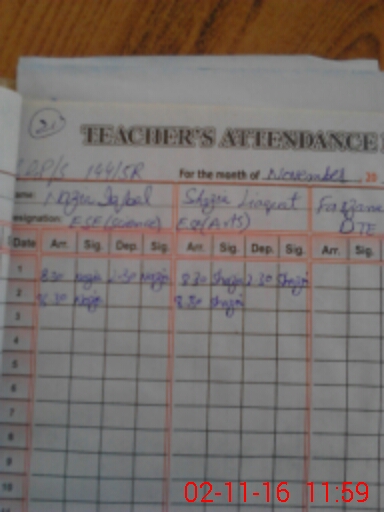 21
TEACHER'S ATTENDANCE
144/SR For the month of November 20
ame: Nazia Iqbal Shazia Liaqat Farzana
esignation: ESE(Science) ESE(Arts) DTE
Date Arr. Sig. Dep. Sig. Arr. Sig. Dep. Sig. Arr. Sig.
1 8:30 Nazia 2:30 Nazia 8:30 Shazia 2:30 Shazia
2 8:30 Nazia 8:30 Shazia
3
4
5
6
7
8
9
10
02-11-16 11:59